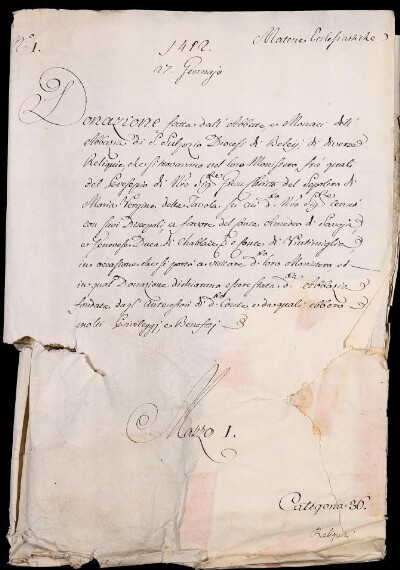 N.° 1.
1412.
Materie Ecclesiastiche
27 Gennajo
Donazione fatta dall'Abbate, e Monaci dell'
Abbazia di S. Sulpizio Diocesi di Belej di diverse
Reliquie, che si trovavano nel loro Monistero, frà quali
del Presepio di Nro Sig.re Gesù Christo del Sepolcro di
Maria Vergine, della Tavola, su cui d.° Nro Sig.re cenò
con suoi Discepoli, a favore del Conte Amedeo di Savoja
e Genevese Duca di Chablais, e Conte di
in occasione, che si portò a visitare d.° loro Monistero, et
in qual Donazione dichiarano essere stata d.a Abbazia
fondata dagl'Antecessori di d.° Conte, e da quali ebbero
molti Privileggj, e Beneficj
Mazzo 1.
Categoria 36.
Reliquie